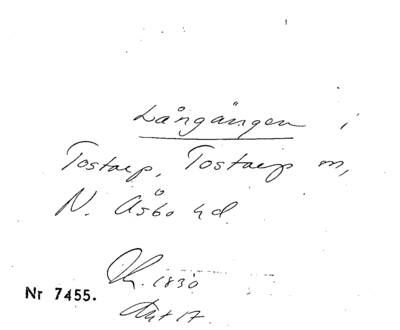 Långängen i
Tostarp, Tostarp m,
N. Åsbo hd
1830
Nr 7455.
Akt 17